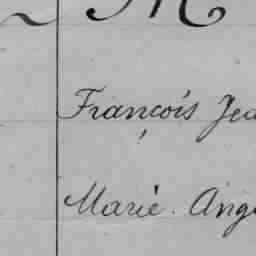 M
François Jea
Marie. Ang